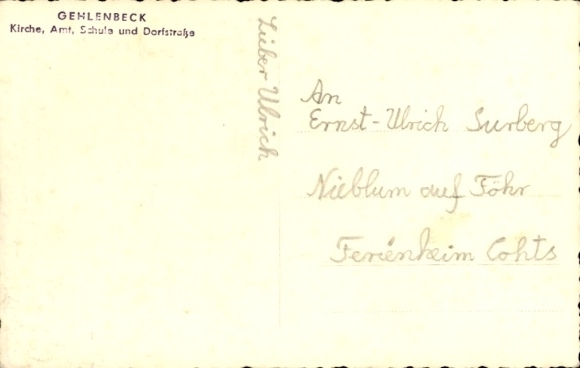 GEHLENBECK
Kirche, Amt, Schule und Dorfstraße
Lieber Ulrich
An
Ernst-Ulrich Surberg
Nieblum auf Föhr
Ferienheim Cohts